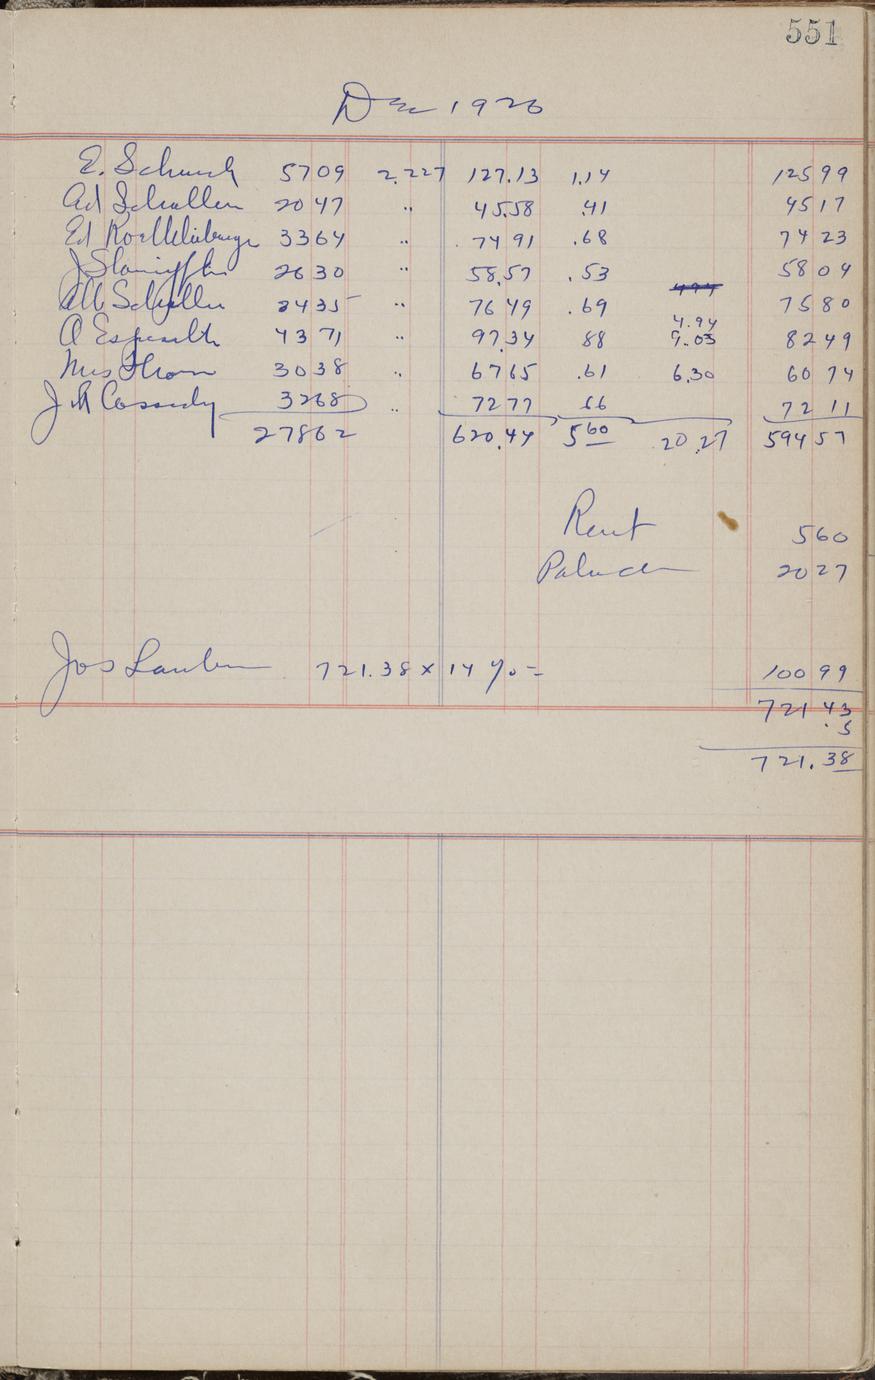 551
Dec 1926
E. Schurch 5709 2.227 127.13 1.14 125 99
Ad Schallen 2047 " 45.58 .41 45 17
Ed 3364 " 74 91 .68 74 23
J 2630 " 58.57 .53 58 04
Schaller 3435 " 76 49 .69 75 80
4.94
A Esperseth 4371 " 97.34 88 9.03 82 49
Mrs Thom 3038 " 67 65 .61 6.30 60 74
J M Cassedy 3268 " 72 77 66 72 11
27862 620.44 5 60 20.27 594 57
Rent 5 60
20 27
Jos Lauben 721.38 x 14 % = 100 99
721 43
. 5
721.38